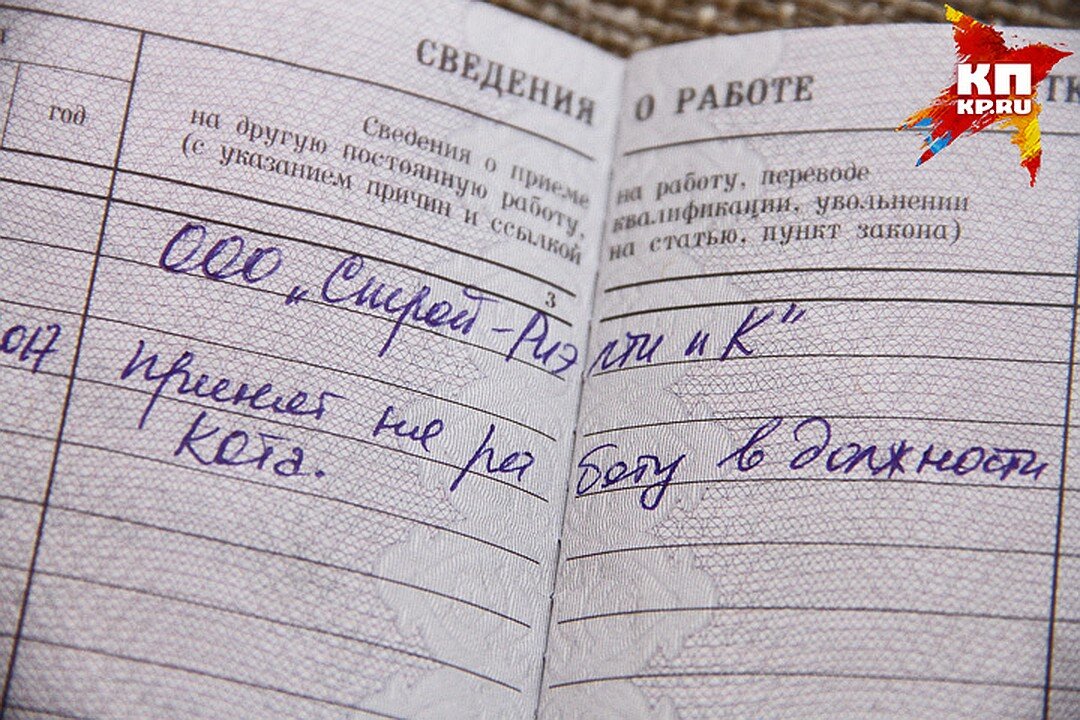 СВЕДЕНИЯ О РАБОТЕ
КП
KP.RU
год
Сведения о приеме на работу, переводе
на другую постоянную работу, квалификации, увольнении
(с указанием причин и ссылкой на статью, пункт закона)
3
ООО „Строй-Риэлти и К"
017 принят на работу в должности
кота.